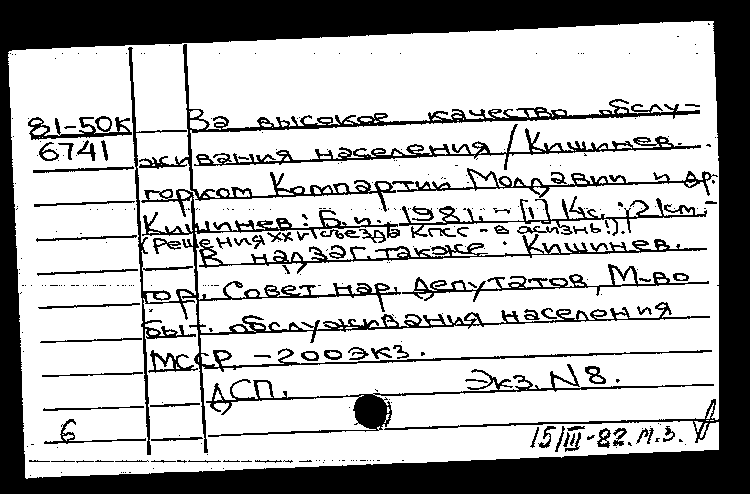 81-50К За высокое качество обслу-
6741 живания населения / Кишинев.
горком Компартии Молдавии и др.
Кишинев: Б.и., 1981. - [1], 14с.; 21см. -
(Решения XXVI съезда КПСС - в жизнь!).
В надзаг. также: Кишинев.
гор. Совет нар. депутатов, М-во
быт. обслуживания населения
МССР. - 200экз.
ДСП. Экз. N 8.
6
15/III-82. М.З.